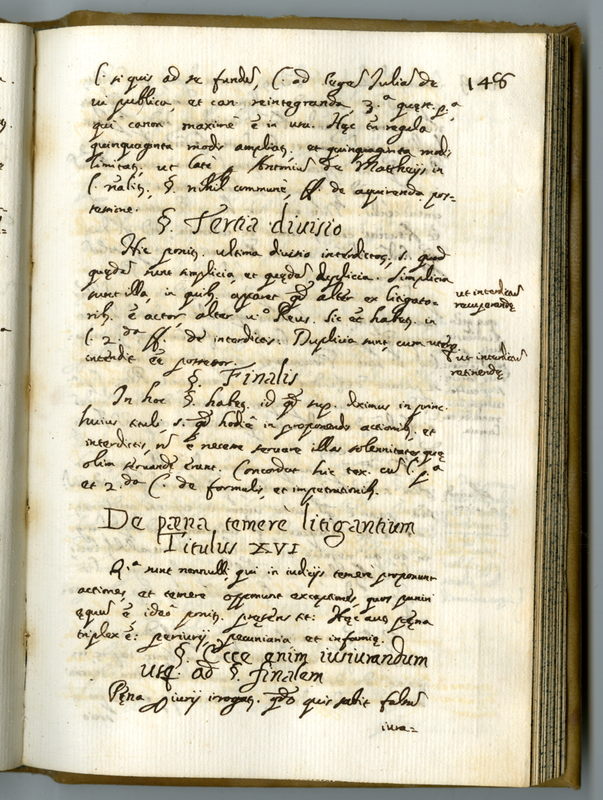 l. si quis ad se fundũ, C. ad legẽ Juliã de
148
ui publica, et can. reintegranda, 3.ª quęst. p.ª
qui canon maximè ẽ in usu. Hęc tñ regula
quinquaginta modis ampliat, et quinquaginta modis
limitat, ut latè Antonius de Mattheijs in
§. nihil commune, ff. de aquirenda pos-
sessione.
§. Tertia diuisio
Hic ponit. ultima diuisio interdictoꝝ, s. quod
quędã sunt simplicia, et quędã duplicia. Simplicia
sunt illa, in quib. apparet qd alter ex litigato-
rib. ẽ actor, alter uº Reus. sic ẽt habet. in
l. 2.da ff. de interdictis. Duplicia sunt, cum uterq.
intendit ẽe possessor.
ut interdictũ
recuperandę
ut interdictũ
retinendę
§. Finalis
In hoc §. habet. id qd sup. diximus in princ.
huius tituli, s. qd hodiè in proponendis actionib., et
interdictis, nõ ẽ necesse seruare illas solennitates quę
olim seruandę erant. Concordat hic tex. cũ l. p.ª
et 2.da C. de formulis, et impetrationib.
De pæna temerè litigantium
Titulus XVI
Q.ª sunt nonnulli qui in iudicijs temerè proponunt
actiones, et temerè opponunt exceptiones, quos puniri
ęquũ ẽ, ideò ponit. pręsens tit. Hęc aut pęna
triplex ẽ: periurij, pecuniaria et infamię.
§. Ecce enim iusiurandum
usq. ad §. finalem
Pęna periurij irrogat. qdo quis subit falsũ
iura=